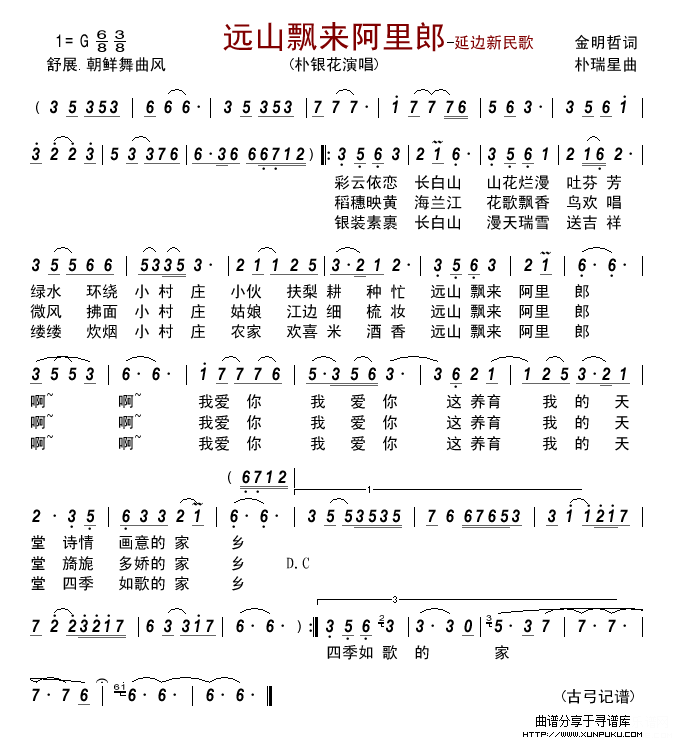 1= G 6/8 3/8 远山飘来阿里郎-延边新民歌 金明哲词
舒展.朝鲜舞曲风 (朴银花演唱) 朴瑞星曲
( 3 5 3 5 3 | 6 6 6· | 3 5 3 5 3 | 7 7 7· | 1 7 7 7 6 | 5 6 3· | 3 5 6 1 |
3 2 2 3 | 5 3 3 7 6 | 6· 3 6 6 6 7 1 2 ) ‖: 3 5 6 3 | 2 1 6· | 3 5 6 1 | 2 1 6 2· |
彩云依恋 长白山 山花烂漫 吐芬 芳
稻穗映黄 海兰江 花歌飘香 鸟欢 唱
银装素裹 长白山 漫天瑞雪 送吉 祥
3 5 5 6 6 | 5 3 3 5 3· | 2 1 1 2 5 | 3·2 1 2· | 3 5 6 3 | 2 1 | 5· 5· |
绿水 环绕 小 村 庄 小伙 扶犁 耕 种 忙 远山 飘来 阿里 郎
微风 拂面 小 村 庄 姑娘 江边 细 梳 妆 远山 飘来 阿里 郎
缕缕 炊烟 小 村 庄 农家 欢喜 米 酒 香 远山 飘来 阿里 郎
3 5 5 3 | 6· 6· | 1 7 7 7 6 | 5·3 5 6 3· | 3 6 2 1 | 1 2 5 3·2 1 |
啊~ 啊~ 我爱 你 我 爱 你 这 养育 我 的 天
啊~ 啊~ 我爱 你 我 爱 你 这 养育 我 的 天
啊~ 啊~ 我爱 你 我 爱 你 这 养育 我 的 天
( 6 7 1 2 | 1
2· 3 5 | 6 3 3 2 1 | 6· 6· | 3 5 3 5 3 5 | 7 6 6 7 6 5 3 | 3 1 1 2 1 7 |
堂 诗情 画意的 家 乡
堂 旖旎 多娇的 家 乡 D.C
堂 四季 如歌的 家 乡
3
7 2 2 3 2 1 7 | 6 3 3 1 7 | 6· 6· ) :‖ 3 5 6 2 3 | 3· 3 0 | 3 5· 3 7 | 7· 7· |
四季如 歌 的 家
7· 7 6 | 6 i 6· 6· | 6· 6· ‖ (古弓记谱)
曲谱分享于寻谱库
HTTP://WWW.XUNPUKU.COM